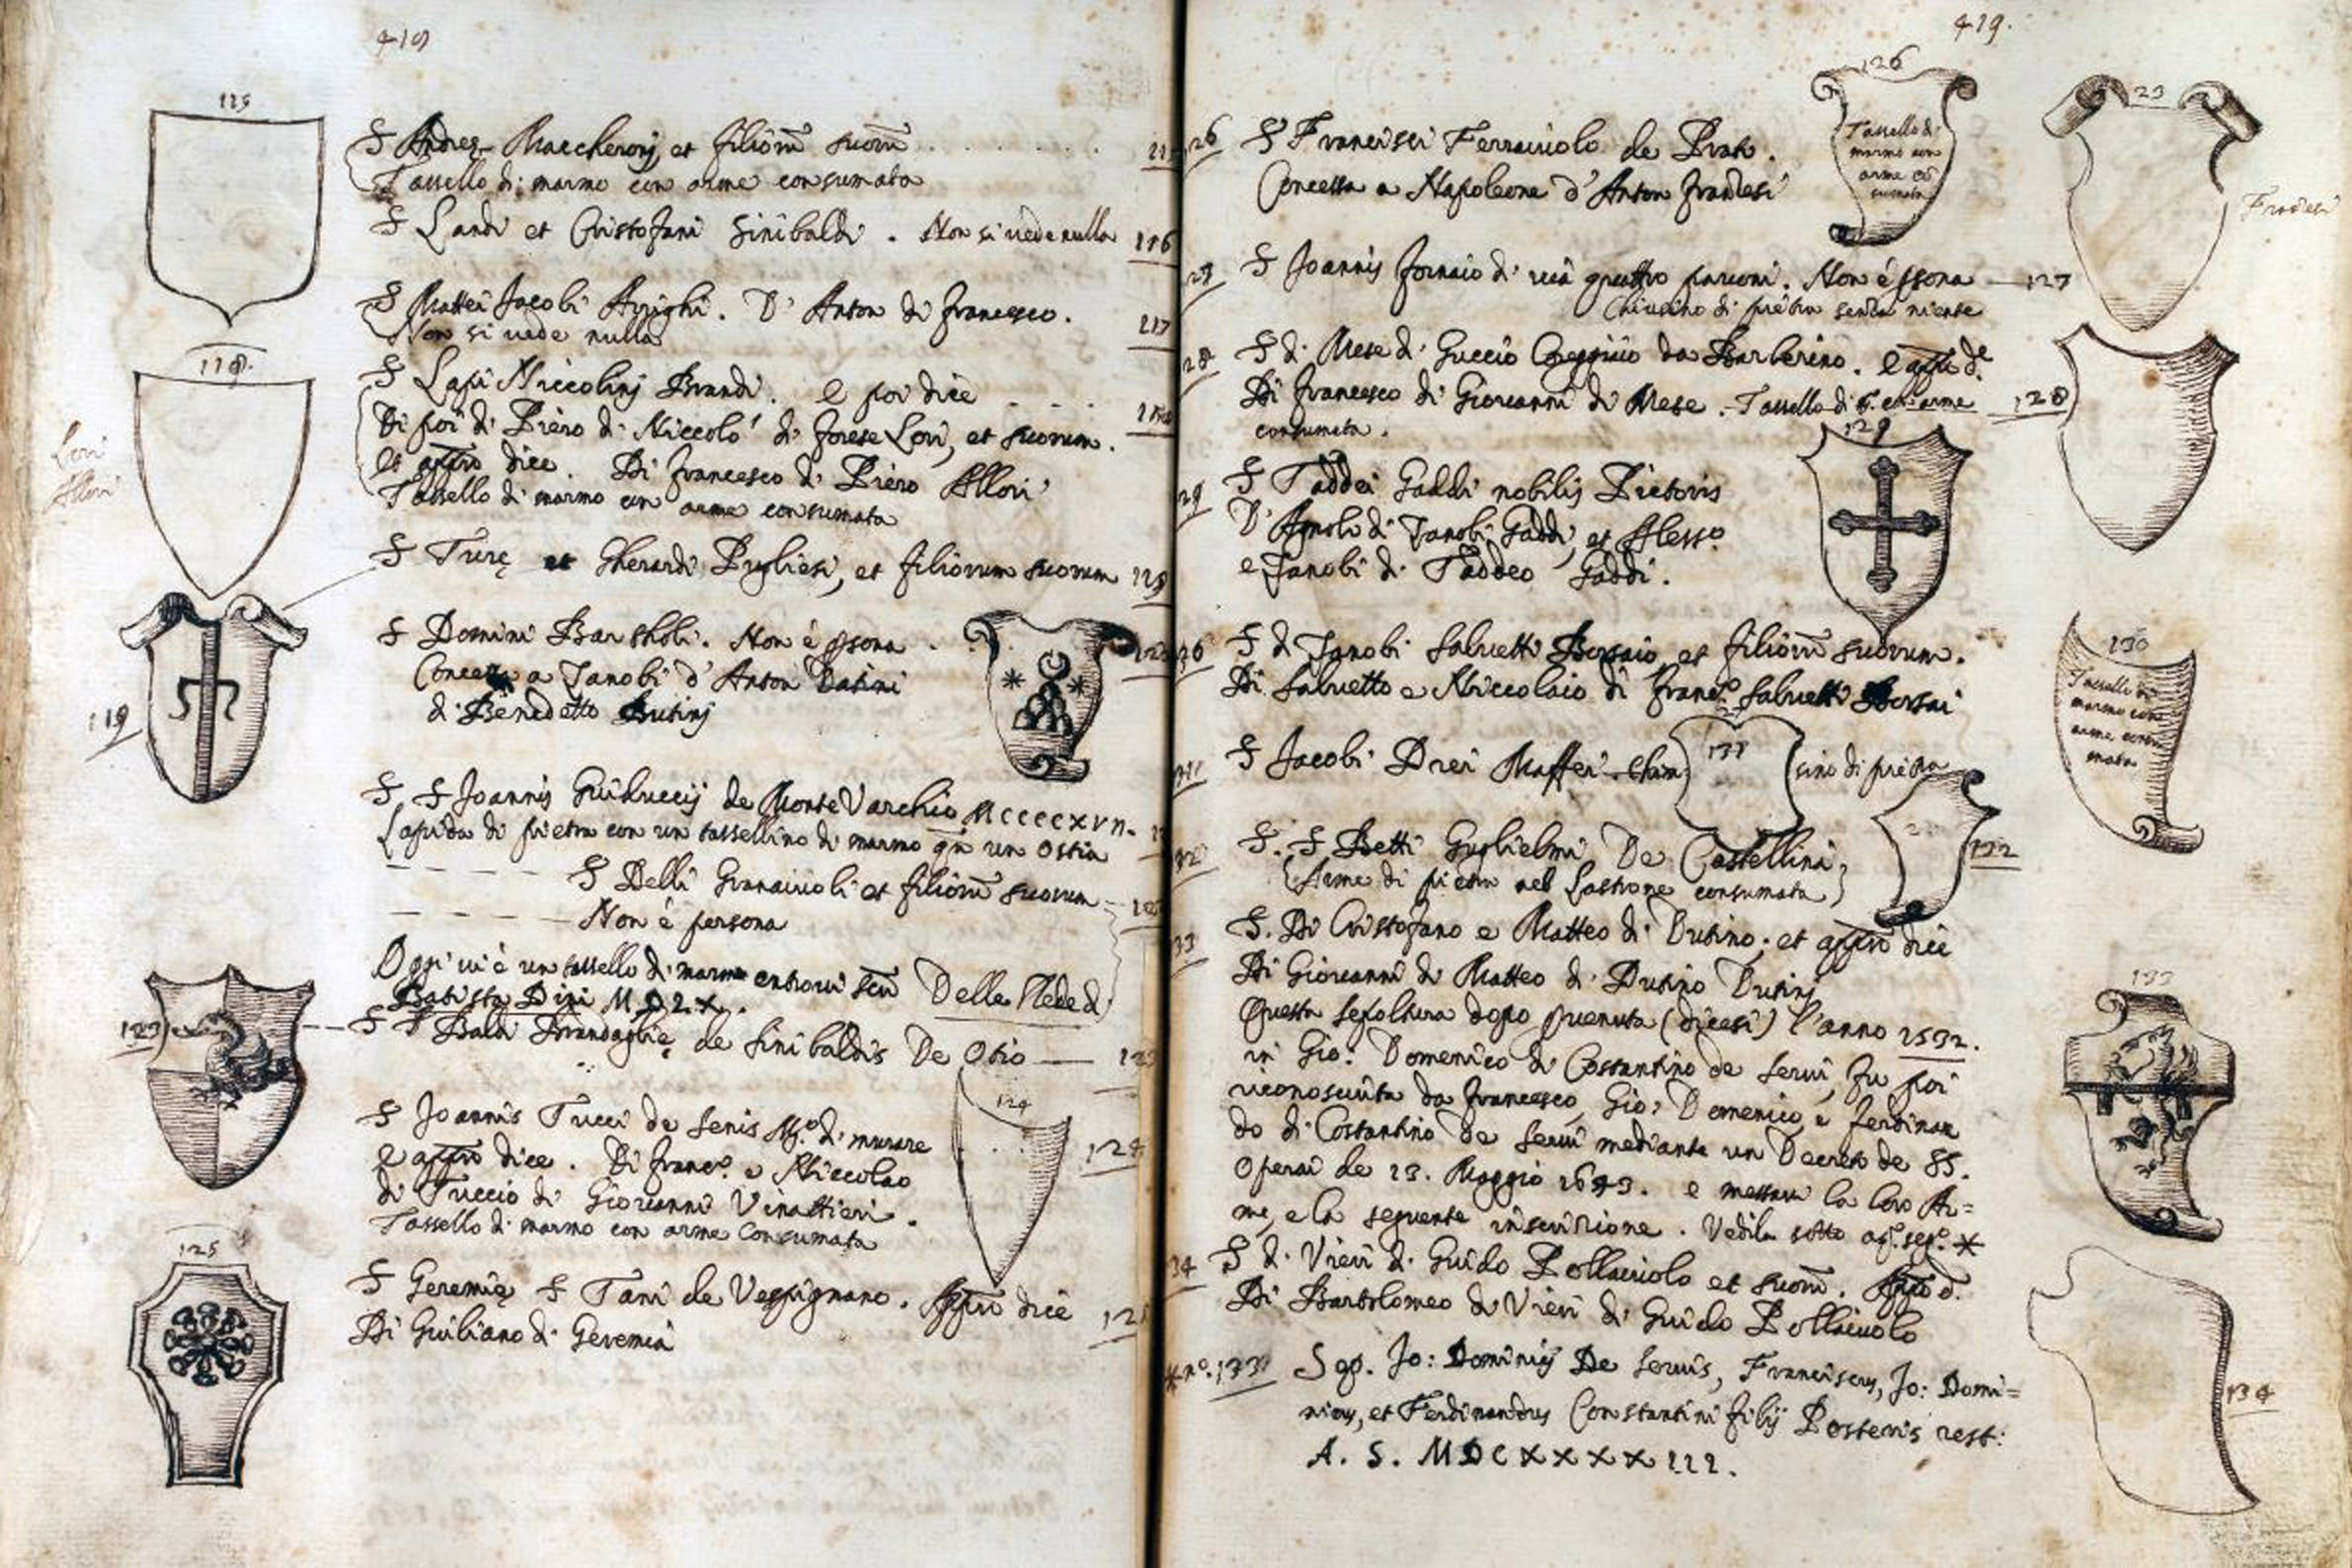 419
115
S Andreę Maccheronj, et filiōm̄ suom̄
Tassello di marmo con arme consumata
S Landi et Cristofani Sinibaldi. Non si vede nulla 116
S Mattei Jacobi Arrighi. D' Anton di Francesco. 117
Non si vede nulla
118.
S Lapi Niccolinj Brandi. e poi dice
Di poi di Piero di Niccolò di Forese Lori, et suorum.
Et app.º dice. Di Francesco di Piero Allori
Tassello di marmo con arme consumata
Lori
Allori
S Turę et Gherardi Pugliesi, et filiorum suorum 119
119
S Domini Bartholi. Non è psona
Concessa a Zanobi d'Anton Dutini
di Benedetto Butinj
S S Joannis Guiduccij de Monte Varchio MCCCCXVII.
Lapida di pietra con un tassellino di marmo qñ un Ostia
S Delli Granaiuoli et filiōm̄ suorum
Non è persona
Oggi vi è un tassello di marmo entrovi
Batista Dini MDLX.
S S Baldi Brandaglię de Sinibaldis De Otio
123
124
S Joannis Tucci de Senis M.º di murare
e app.º dice. Di Franc.º e Niccolao 124
di Tuccio di Giovanni Vinattieri.
Tassello di marmo con arme Consumata
125
S Geremię S Tani de Vespignano. App.º dice
Di Giuliano di Geremia
419.
126
S Francisci Ferraiuolo de Prato.
Concessa a Napoleone d'Anton Franzesi
Tassello di
marmo con
arme cō
sumata
Franzesi
S Joannis fornaio di via quattro pavoni. Non è psona 127
Chiusino di pietra senza niente
S di Mese di Guccio da Barberino. e app.º d.e
Di Francesco di Giovanni di Mese. Tassello di con arme 128
consumata.
129
S Taddei Gaddi nobilis Pictoris
D'Agnolo di Zanobi Gaddi, et Aless.º
e Zanobi di Taddeo Gaddi.
S di Zanobi Salvetti Borsaio et filiōm̄ suorum.
Di Salvetto e Niccolaio di Franc.º Salvetti Borsai
130
Tassello di
marmo con
arme consu
mata
S Jacobi Drei Maffei chiu 131 sino di pietra
S. S Betti Guglielmi De Castellina, 132
Arme di pietra nel Lastrone consumata
S. Di Cristofano e Matteo di Dutino, et app.º dice
Di Giovanni di Matteo di Dutino Dutinj
Questa sepoltura dopo pvenuta (dicesi) l'anno 1532.
in Gio: Domenico di Costantino de Servi, fu poi
riconosciuta da Francesco, Gio: Domenico, e Ferdinan
do di Costantino de Servi mediante un Decreto de SS.
Operai de 13. Maggio 1643. e messavi la loro Ar=
me, e la seguente inscrizione. Vedila sotto a q.º seg.º *
133
S di Vieri di Guido Pollaiuolo et suom̄. App.º d.
Di Bartolomeo di Vieri di Guido Pollaiuolo
134
* nº. 133 Sep. Jo: Dominicj De Servis, Franciscus, Jo: Domi=
nicus, et Ferdinandus Constantini filij Posteris rest:
A. S. MDCXXXXIII.